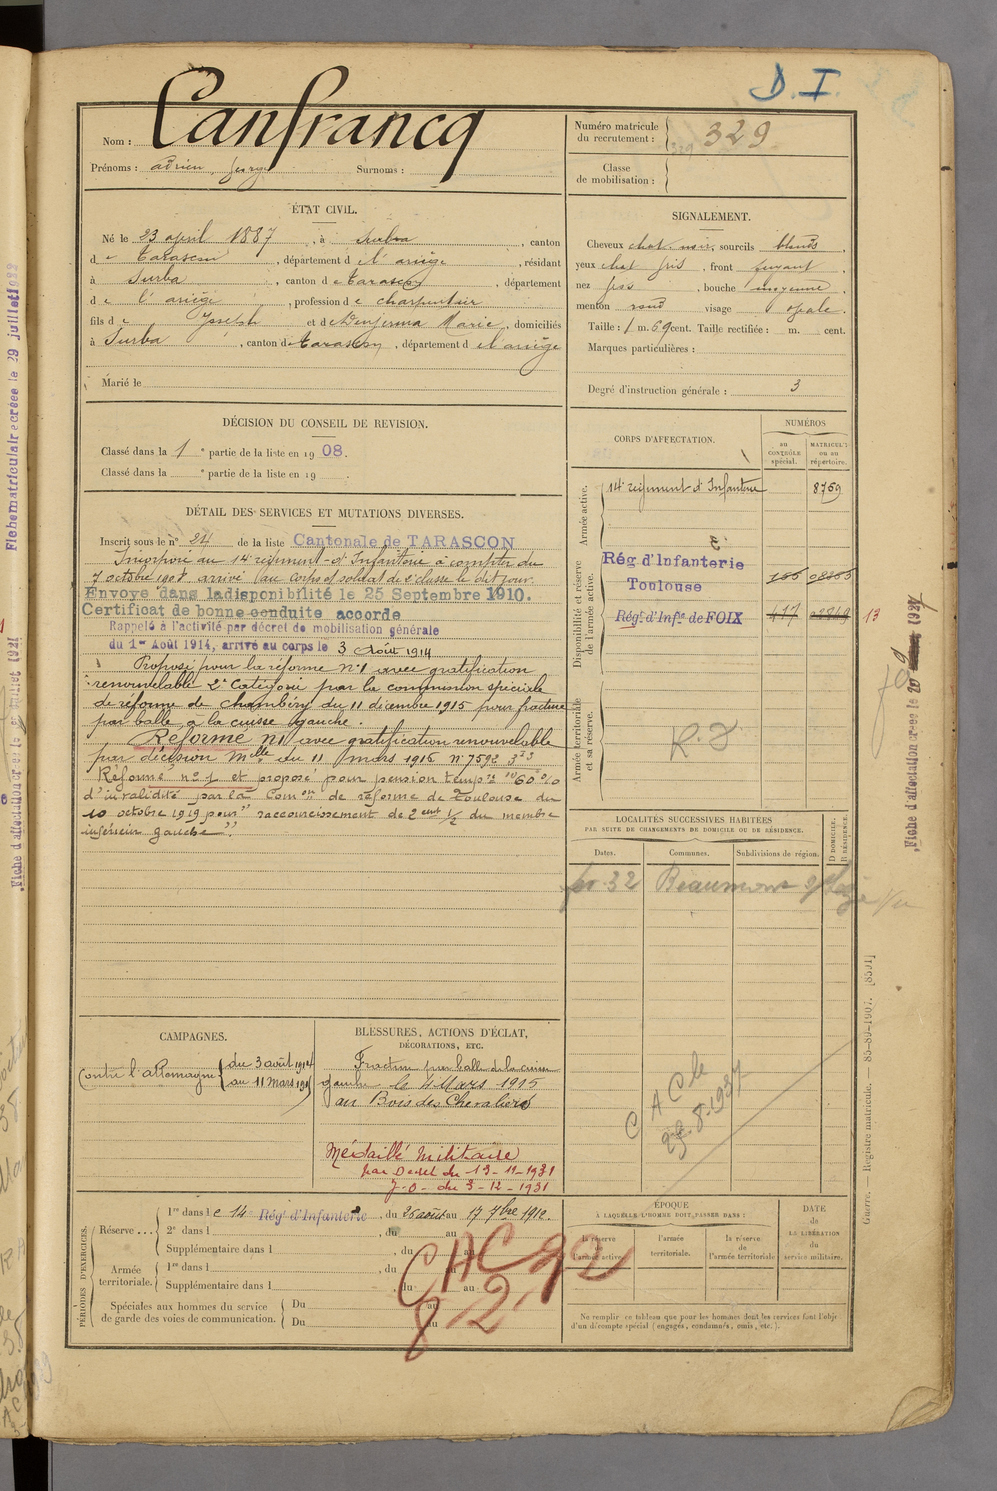 D. I.
Nom : Canfrancq
Prénoms : adrien, Surnoms :
Numéro matricule du recrutement : 329
Classe de mobilisation :
ÉTAT CIVIL.
Né le 23 april 1887, à Surba, canton
de Tarascon, département de l'ariège, résidant
à Surba, canton de Tarascon, département
de l'ariège, profession de charpentier
fils de Joseph et de Marie, domiciliés
à Surba, canton de Tarascon, département de l'ariège
Marié le
SIGNALEMENT.
Cheveux chat. noir, sourcils blonds,
yeux chat gris, front fuyant,
nez gros, bouche moyenne,
menton rond visage ovale.
Taille : 1 m. 69 cent. Taille rectifiée : m. cent.
Marques particulières :
Degré d'instruction générale : 3
DÉCISION DU CONSEIL DE REVISION.
Classé dans la 1e partie de la liste en 1908.
Classé dans la e partie de la liste en 19
CORPS D'AFFECTATION.
NUMÉROS
au CONTRÔLE spécial.
MATRICULE ou au répertoire.
Armée active.
14e régiment d'Infanterie 8769
Disponibilité et réserve de l'armée active.
Rég d'Infanterie
Toulouse
Rég.t d'Inf.ie de FOIX 417 13
Armée territoriale et sa réserve.
R. D
DÉTAIL DES SERVICES ET MUTATIONS DIVERSES.
Inscrit sous le n° 24 de la liste Cantonale de TARASCON
Incorporé au 14e régiment d'Infanterie à compter du
7 octobre 1908 arrivé au corps et soldat de 2e classe le dit jour.
Envoyé dans la disponibilité le 25 Septembre 1910.
Certificat de bonne conduite accordé
Rappelé à l'activité par décret de mobilisation générale
du 1er Août 1914, arrivé au corps le 3 Août 1914
Proposé pour la réforme n°1 avec gratification
renouvelable 2e Catégorie par la commission spéciale
de réforme de chambéry du 11 décembre 1915 pour fracture
par balle à la cuisse gauche.
Réformé n°1 avec gratification renouvelable
par décision Mlle du 11 Mars 1916 n° 7592
Réformé n° 1 et proposé pour pension tempre 60 %
d'invalidité par la Comon de réforme de Toulouse du
10 octobre 1919 pour "raccourcissement de 2 cent 1/2 du membre
inférieur gauche".
LOCALITÉS SUCCESSIVES HABITÉES
PAR SUITE DE CHANGEMENTS DE DOMICILE OU DE RÉSIDENCE.
Dates. Communes. Subdivisions de région. D DOMICILE. R RÉSIDENCE.
32 Beaumont
C A C le
25.8.1937
CAMPAGNES.
Contre l'allemagne du 3 août 1914
au 11 Mars 1916
BLESSURES, ACTIONS D'ÉCLAT,
DÉCORATIONS, ETC.
Fracture par balle de la cuisse
gauche le 4 Mars 1915
au Bois des Chevaliers
Médaillé Militaire
par Décret du 13-11-1931
J-O- du 3-12-1931
PÉRIODES D'EXERCICES.
Réserve ... 1re dans le 14 Régt d'Infanterie, du 26 août au 17 7bre 1912.
2e dans l , du au
Supplémentaire dans l , du au
Armée territoriale. 1re dans l , du au
Supplémentaire dans l , du au
Spéciales aux hommes du service de garde des voies de communication. Du au
Du au
C A C 92
8 2
ÉPOQUE
À LAQUELLE L'HOMME DOIT PASSER DANS :
la réserve de l'armée active l'armée territoriale. la réserve de l'armée territoriale
DATE de LA LIBÉRATION du service militaire.
Ne remplir ce tableau que pour les hommes dont les services font l'objet
d'un décompte spécial (engagés, condamnés, omis, etc.).
Guerre. — Registre matricule. — 85-89-1907. [8501]
Fiche d'affectation créée le 20 1927
Fiche matriculaire créée le 29 juillet